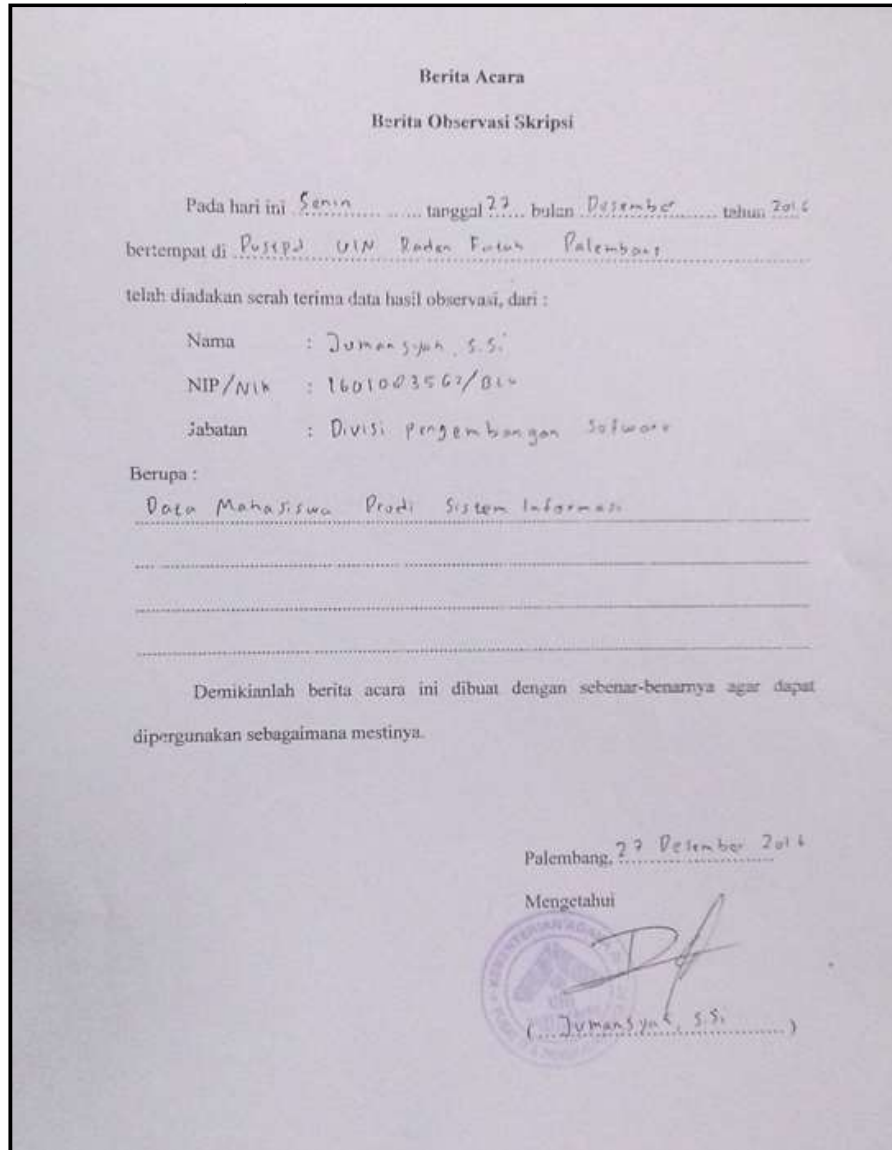 Berita Acara
Berita Observasi Skripsi
Pada hari ini Senin tanggal 27 bulan Desember tahun 2016
bertempat di Pustipd UIN Raden Fatah Palembang
telah diadakan serah terima data hasil observasi, dari :
Nama : Jumansyah, S.Si
NIP/NIK : 1601003567/BLU
Jabatan : Divisi pengembangan Sofware
Berupa :
Data Mahasiswa Prodi Sistem Informasi
Demikianlah berita acara ini dibuat dengan sebenar-benarnya agar dapat
dipergunakan sebagaimana mestinya.
Palembang, 27 Desember 2016
Mengetahui
KEMENTERIAN AGAMA
( Jumansyah, S.Si )